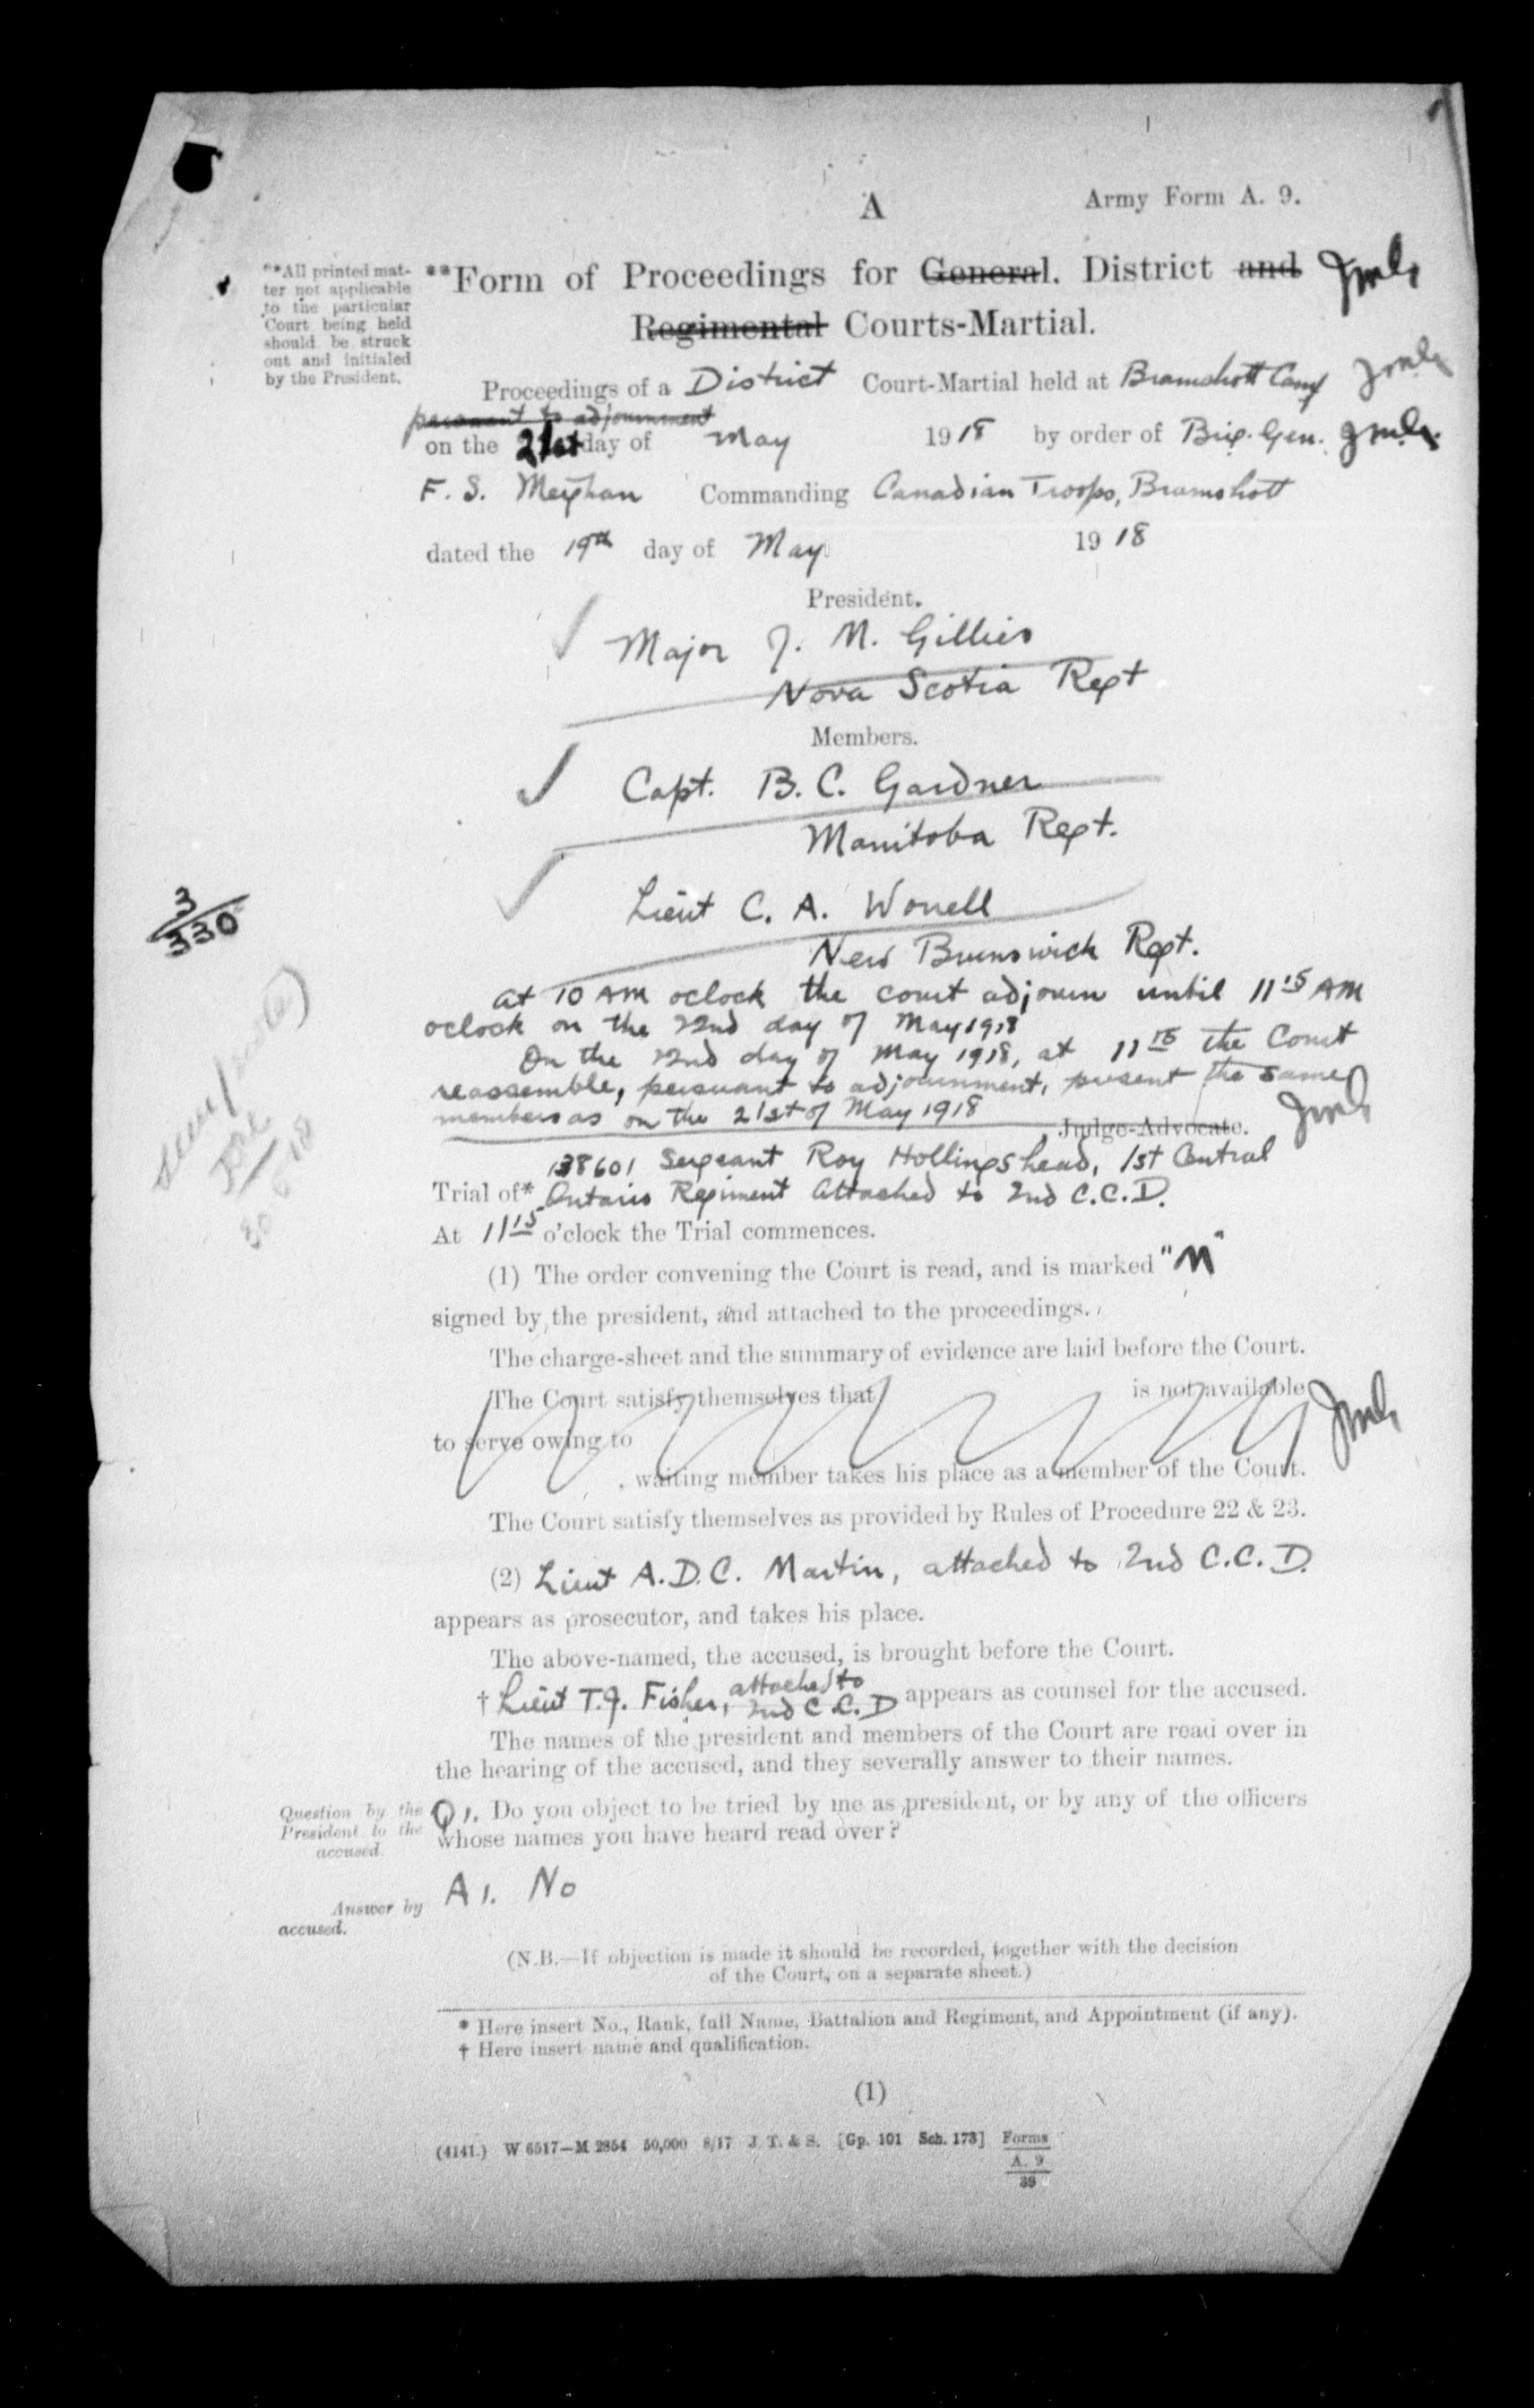 A
Army Form A. 9.
**All printed mat-
ter not applicable
to the particular
Court being held
should be struck
out and initialed
by the President.
**Form of Proceedings for General. District and
Regimental Courts-Martial.
Proceedings of a District Court-Martial held at Bramshott Camp
pursuant to adjournment
on the 21st day of May 1918 by order of Brig. Gen.
F. S. Meighan Commanding Canadian Troops, Bramshott
dated the 19th day of May 1918
President.
Major J. M. Gillies
Nova Scotia Regt
Members.
Capt. B. C. Gardner
Manitoba Regt.
Lieut C. A. Worrell
New Brunswick Regt.
3/330
at 10 AM oclock the court adjourn until 11 15 AM
oclock on the 22nd day of May 1918
On the 22nd day of May 1918, at 11 15 the Court
reassemble, persuant to adjournment, present the same
members as on the 21st of May 1918
, Judge-Advocate.
138601 Sergeant Roy Hollingshead, 1st Central
Trial of* Ontario Regiment Attached to 2nd C.C.D.
At 11 15 o'clock the Trial commences.
(1) The order convening the Court is read, and is marked "M"
signed by the president, and attached to the proceedings.
The charge-sheet and the summary of evidence are laid before the Court.
The Court satisfy themselves that is not available
to serve owing to
, waiting member takes his place as a member of the Court.
The Court satisfy themselves as provided by Rules of Procedure 22 & 23.
(2) Lieut A.D.C. Martin, attached to 2nd C.C.D.
appears as prosecutor, and takes his place.
The above-named, the accused, is brought before the Court.
† Lieut T.J. Fisher, attached to 2nd C.C.D appears as counsel for the accused.
The names of the president and members of the Court are read over in
the hearing of the accused, and they severally answer to their names.
Question by the
President to the
accused.
Q 1. Do you object to be tried by me as president, or by any of the officers
whose names you have heard read over?
Answer by
accused.
A 1. No
(N.B.—If objection is made it should be recorded, together with the decision
of the Court, on a separate sheet.)
* Here insert No., Rank, full Name, Battalion and Regiment, and Appointment (if any).
† Here insert name and qualification.
(1)
(4141.) W 6517—M 2854 50,000 8/17 J. T. & S. [Gp. 101 Sch. 173] Forms
A. 9
38